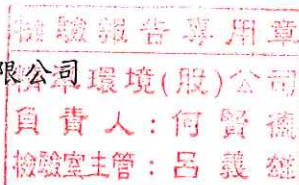 檢驗報告專用章
限公司
環境(股)公司
負責人：何賢
檢驗室主管：呂義